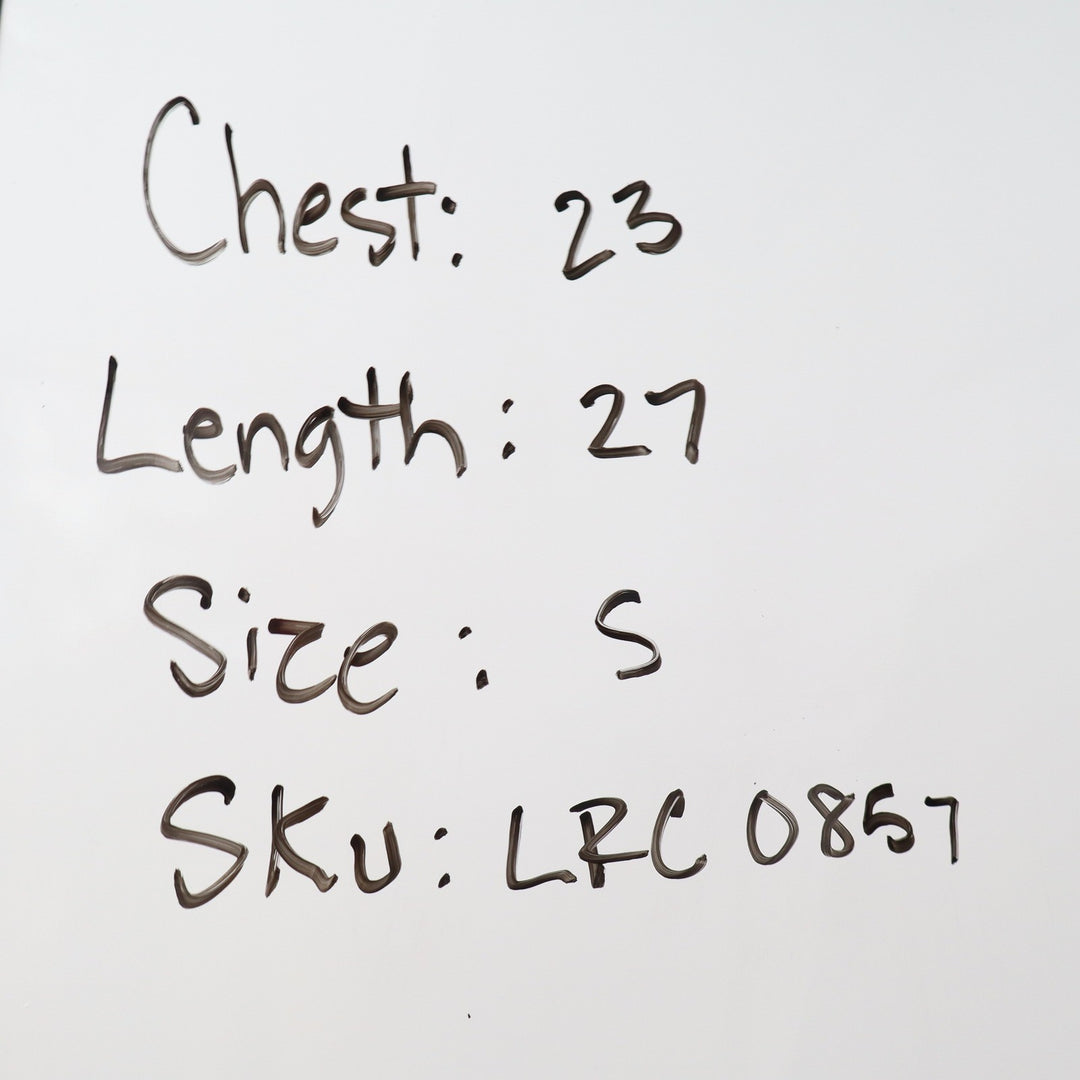 Chest: 23
Length: 27
Size: S
SKU: LRC 0857